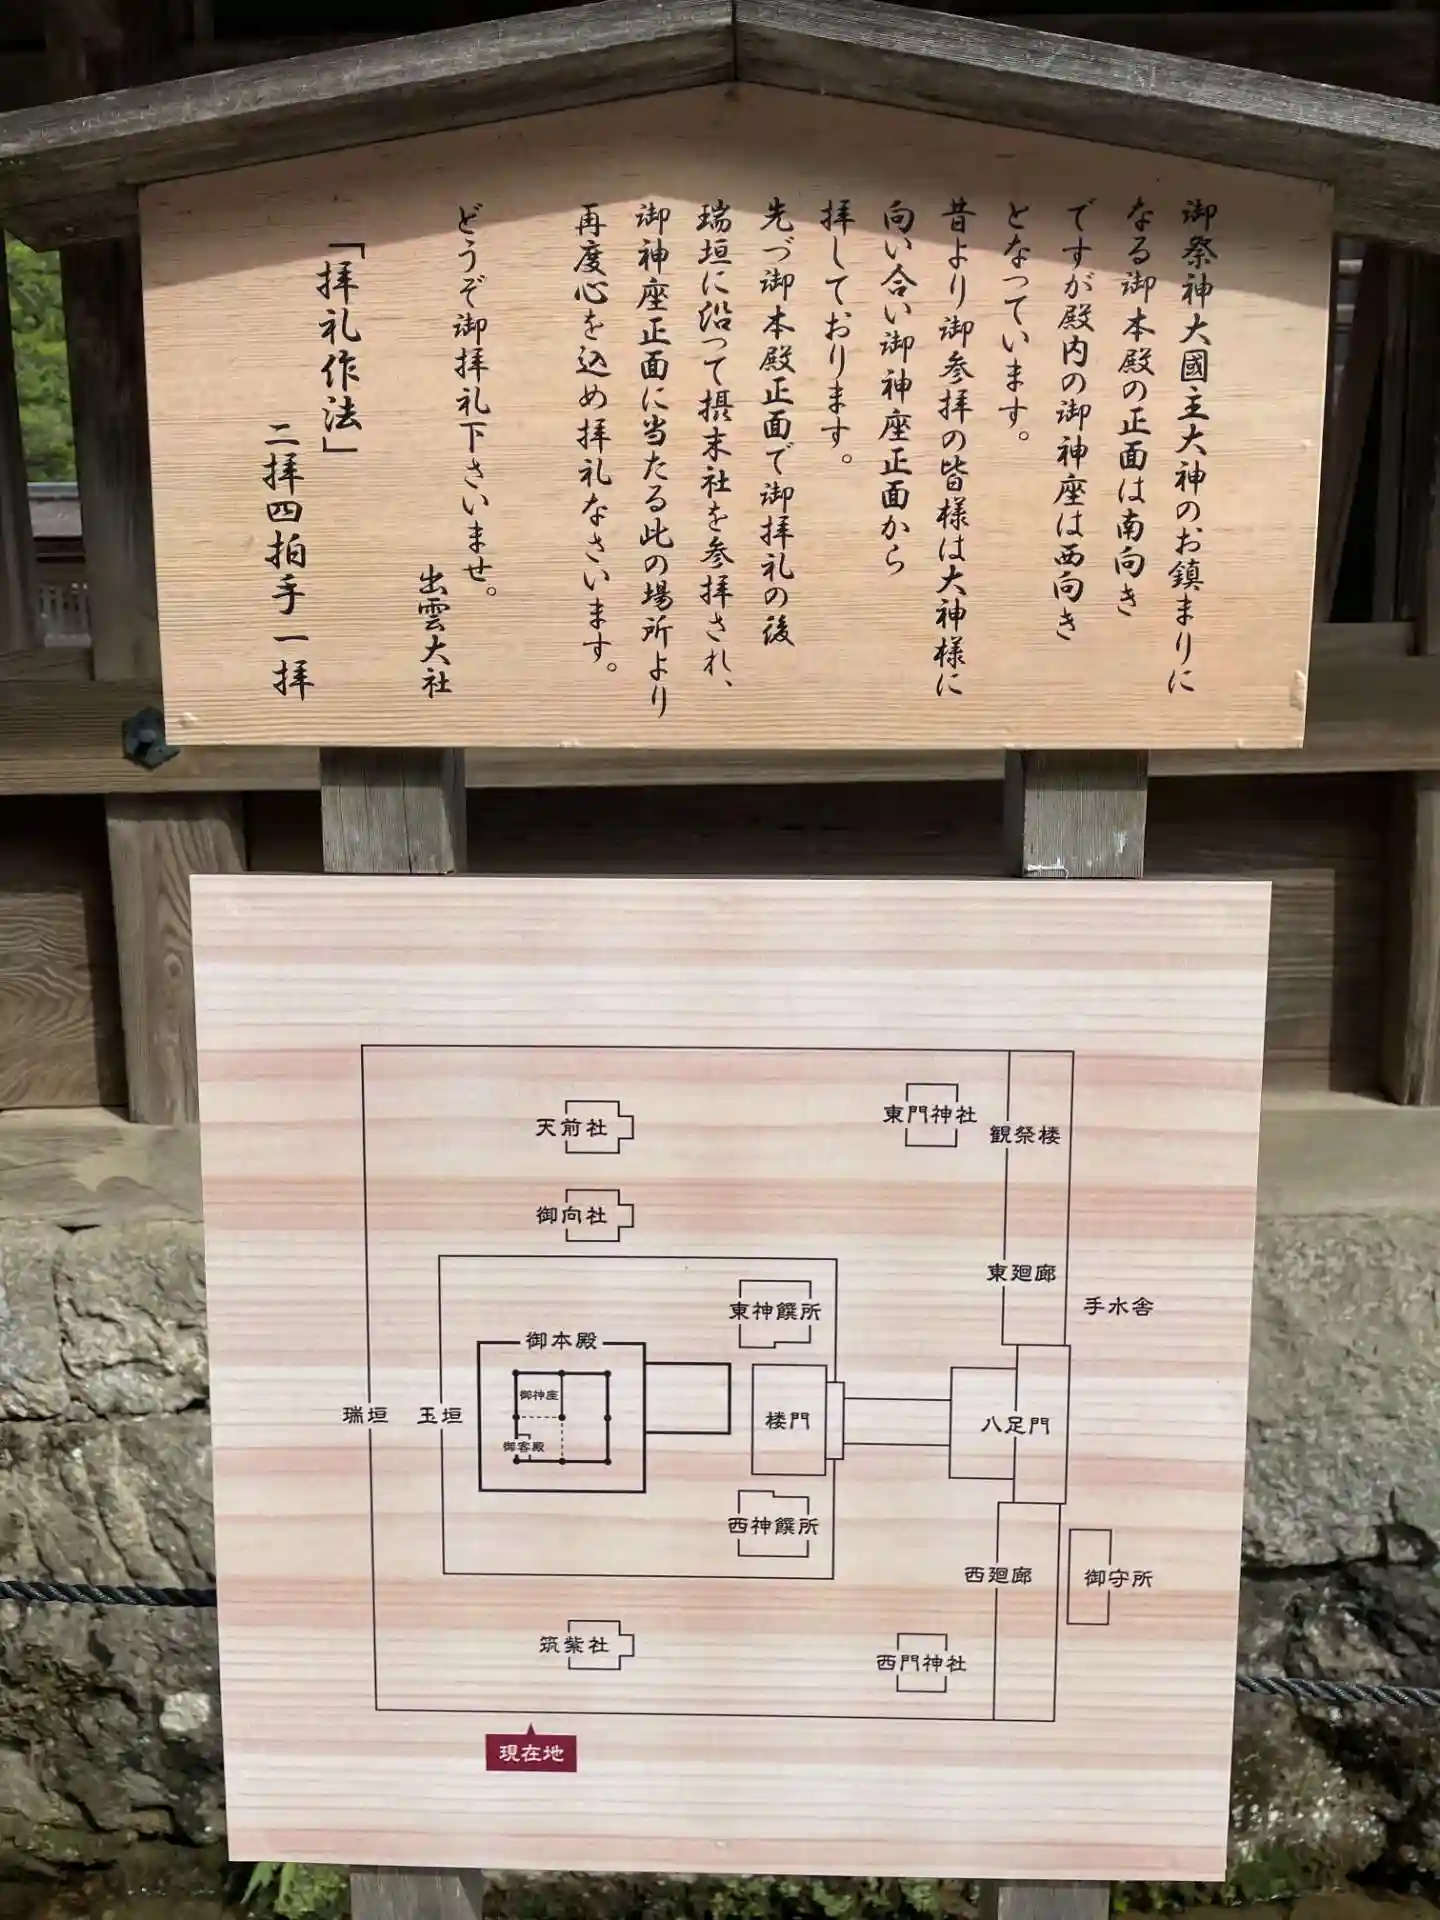 御祭神大國主大神のお鎮まりに
なる御本殿の正面は南向き
ですが殿内の御神座は西向き
となっています。
昔より御参拝の皆様は大神様に
向い合い御神座正面から
拝しております。
先づ御本殿正面で御拝礼の後
瑞垣に沿って摂末社を参拝され、
御神座正面に当たる此の場所より
再度心を込め拝礼なさいます。
どうぞ御拝礼下さいませ。
出雲大社
「拝礼作法」
二拝四拍手一拝
天前社
東門神社
観祭楼
御向社
東廻廊
手水舎
東神饌所
御本殿
御神座
瑞垣
玉垣
御客殿
楼門
八足門
西神饌所
西廻廊
御守所
筑紫社
西門神社
現在地